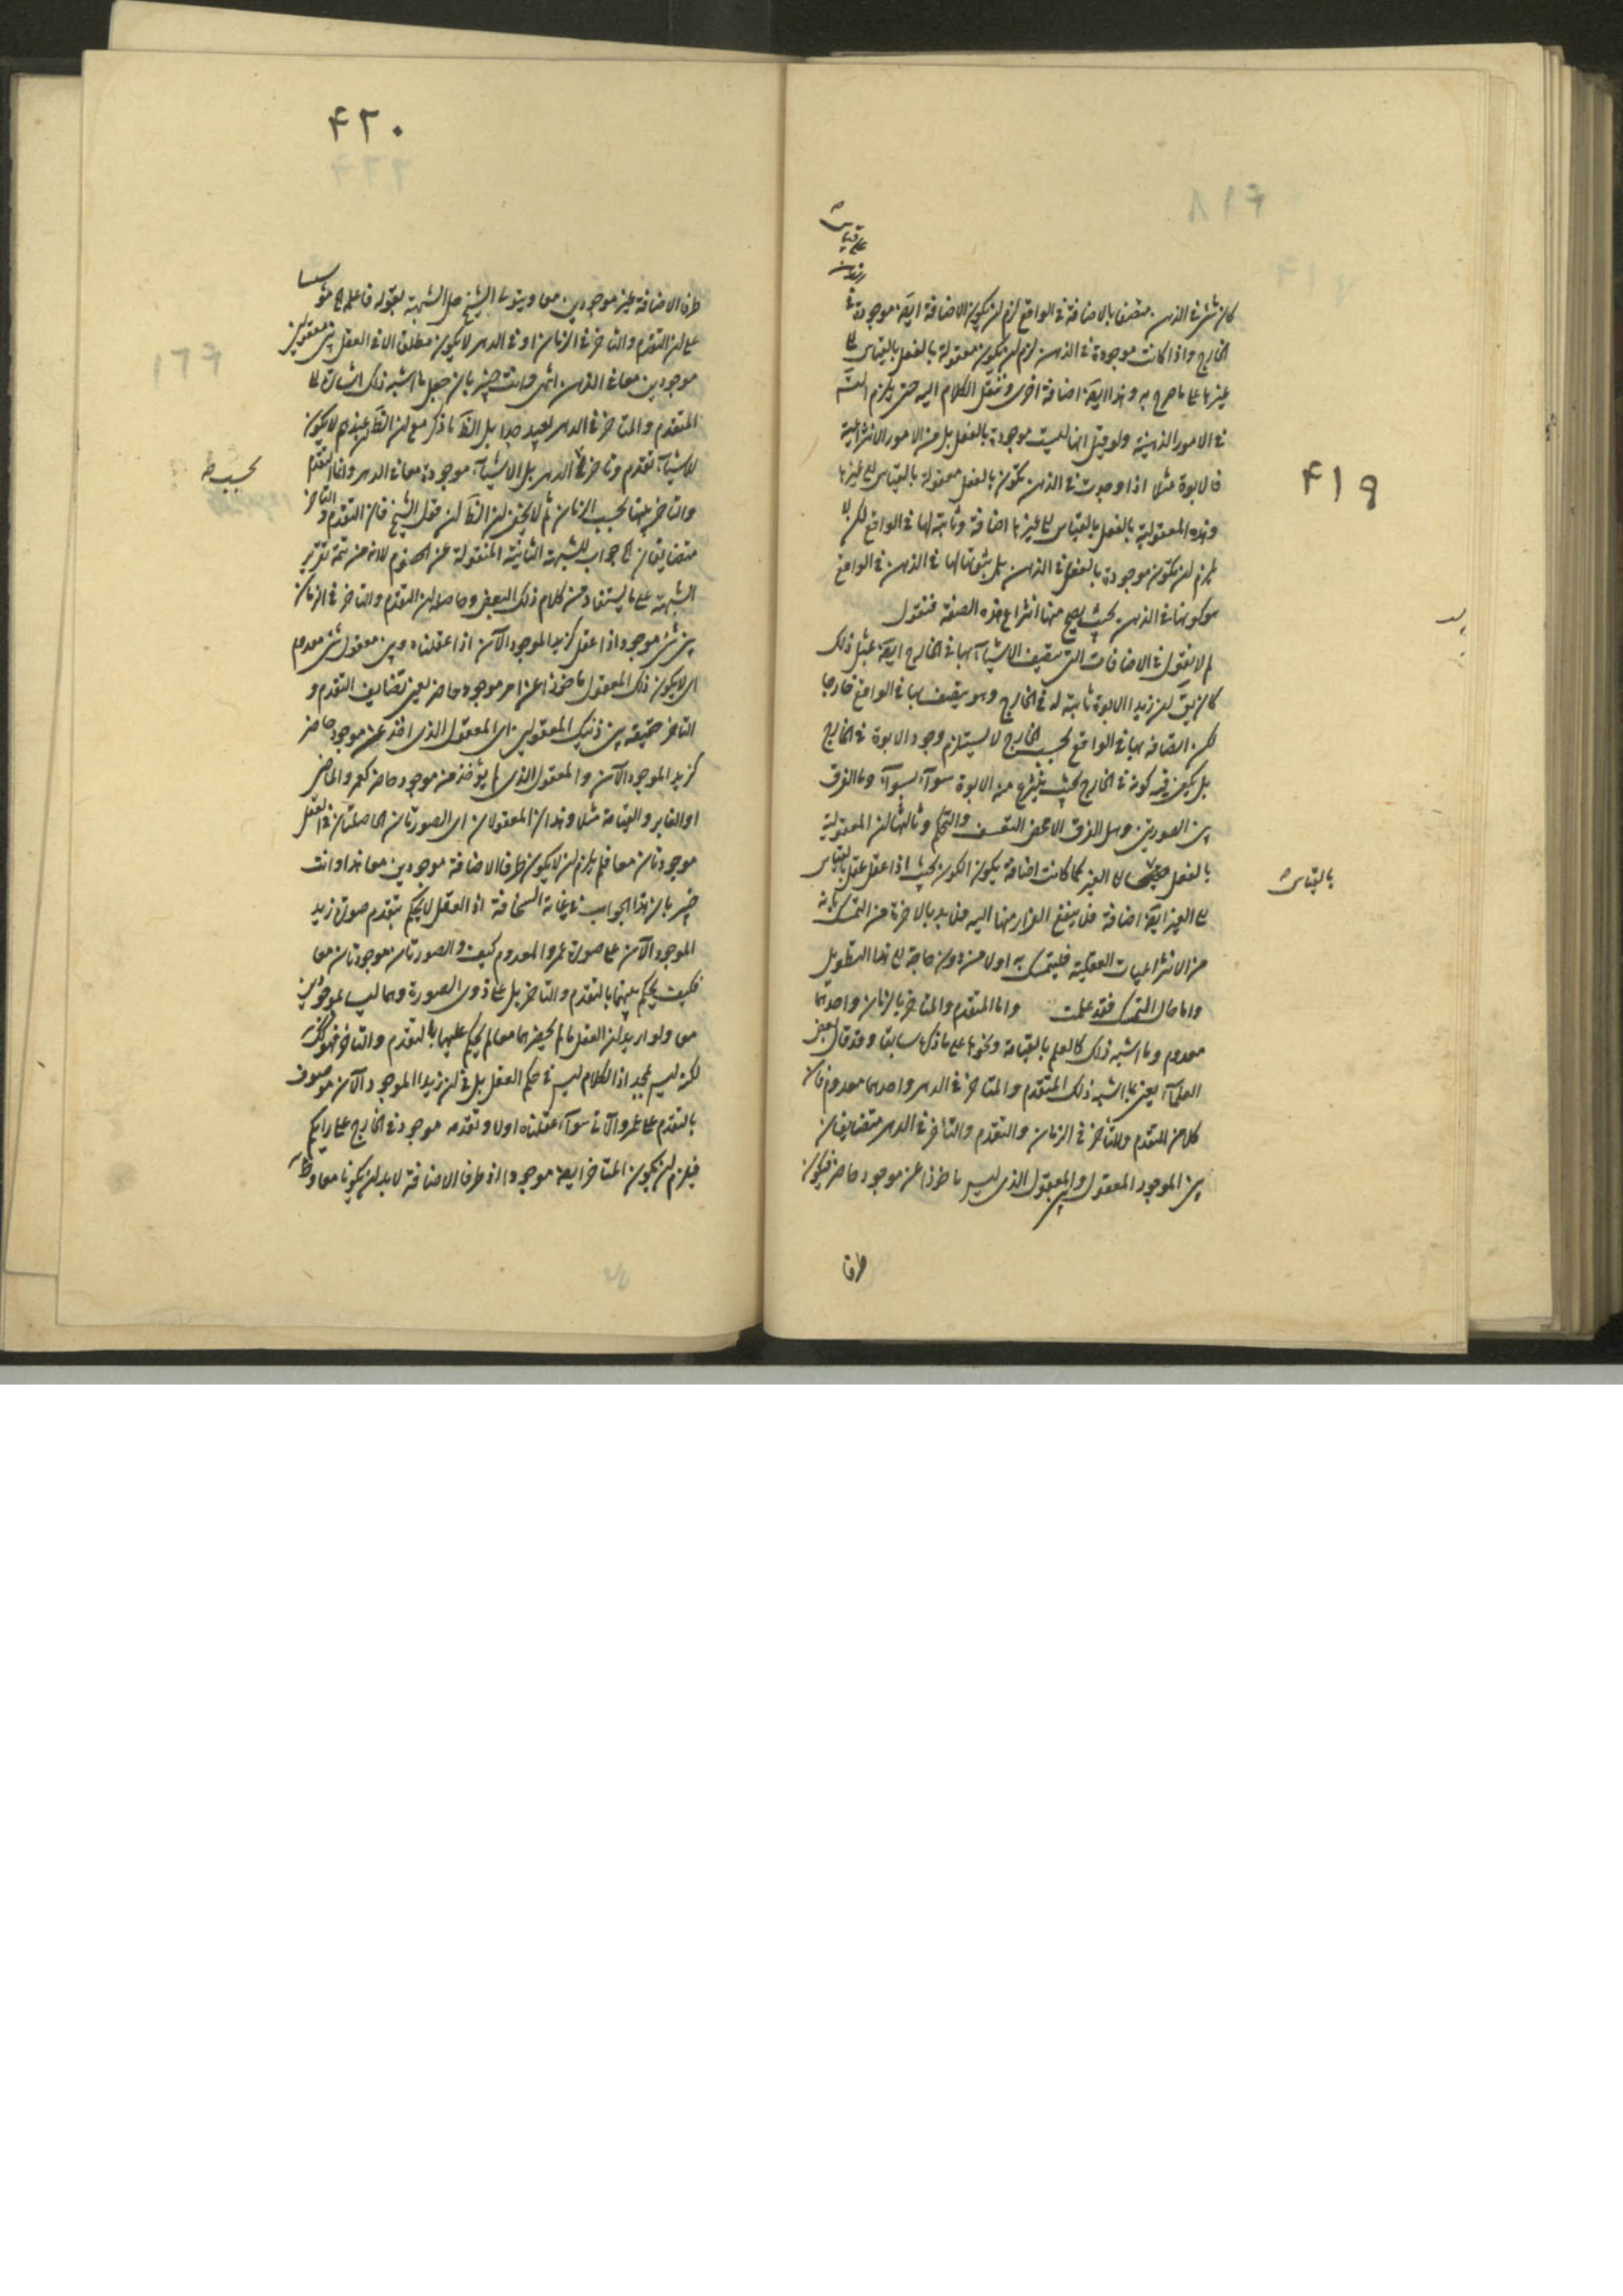 ۴۱۹
كان شئ فى الذهن متصفا بالاضافة فى الواقع لزم ان يكون الاضافة ايضا موجودة فى
الخارج واذا كانت موجودة فى الذهن لزم ان يكون معقولة بالفعل بالقياس الى
غيرها على ما صرح به وهذا ايضا اضافة اخرى وننقل الكلام اليه حتى يلزم التسـ
فى الامور الذهنية ولو قيل انها ليست موجودة بالفعل بل من الامور الانتزاعية
فالابوة مثلا اذا وجدت فى الذهن تكون بالفعل معقولة بالقياس الى غيرها
وهذه المعقولية بالفعل بالقياس الى غيرها اضافة وثابتة لها فى الواقع لكن لا
يلزم ان تكون موجودة بالفعل فى الذهن بل ثبوتها لها فى الذهن فى الواقع
هو كونها فى الذهن بحيث يصح منها انتزاع هذه الصفة فنقول
لم لا يقول فى الاضافات التى يتصف الاشيآء بها فى الخارج ايضا بمثل ذلك
كان يق ان زيدا الابوة ثابتة له فى الخارج وهو يتصف بها فى الواقع خارجا
لكن اتصافه بها فى الواقع بحسب الخارج لا يستلزم وجود الابوة فى الخارج
بل يكفى فيه كونه فى الخارج بحيث ينتزع منه الابوة سوآء بسوآء وما الفرق
بين الصورتين وهل الفرق الا محض التعسف والتحكم وثالثها ان المعقولية
بالفعل الى الغير كما كانت اضافة يكون الكون بحيث اذا عقل عقل بالقياس
الى الغير ايضا اضافة فلن ينفع الفرار منها اليه فلا بد بالاخرة من التمسك بانه
من الانتزاعيات العقلية فليتمسك به اولا من دون حاجة الى هذا التطويل
واما حال التمسك فقد علمت واما المتقدم والمتاخر بالزمان واحدهما
معدوم وما اشبه ذلك كالعلم بالقيامة ونحوها على ما ذكرها سابقا وقد قال بعض
العلمآء يعنى بما اشبه ذلك المتقدم والمتاخر فى الدهر واحدهما معدوم فان
كلا من المتقدم والمتأخر فى الزمان والتقدم والتأخر فى الدهر متضايفان
بين الموجود المعقول وبين المعقول الذى ليس ماخوذا عن موجود حاضر فيكون
بالقياس
طرفا
۴۲۰
طرفا الاضافة غير موجودين معا وينوط الشيخ حل الشبهة بقوله فاعلم
على ان التقدم والتأخر فى الزمان او فى الدهر لا يكون مطلقا الا فى العقل بين معقولين
موجودين معا فى الذهن انتهى وانت خبير بان جعل ما اشبه ذلك اشارة الى
المتقدم والمتاخر فى الدهر بعيد جدا بل الظ ما ذكر مع ان الظ ان عندهم لا يكون
للاشيآء تقدم وتاخر فى الدهر بل الاشيآء موجودة معا فى الدهر وانما التقدم
والتاخر بينها بحسب الزمان ثم لا يخفى ان الظ ان قول الشيخ فان التقدم والتأخر
متضايفان الخ جواب للشبهة الثانية المنقولة عن الخصوم لا انه من تتمة تقرير
الشبهة على ما يستفاد من كلام ذلك البعض وحاصله ان التقدم والتاخر فى الزمان
بين شئ موجود اذا عقل كزيد الموجود الآن اذا عقلناه وبين معقول شئ معدوم
اى لا يكون ذلك المعقول ماخوذا عن امر موجود حاضر يعنى تضايف التقدم و
التاخر حقيقة بين ذينك المعقولين اى المعقول الذى اخذ عن موجود حاضر
كزيد الموجود الآن والمعقول الذى لم يؤخذ من موجود حاضر كعمرو الماضى
او الغابر والقيامة مثلا وهذان المعقولان اى الصورتان الحاصلتان فى العقل
موجودتان معا فلم يلزم ان لا يكون طرفا الاضافة موجودين معا هذا وانت
خبير بان هذا الجواب فى غاية السخافة اذ العقل لا يحكم بتقدم صورة زيد
الموجود الآن على صورة عمرو المعدوم كيف والصورتان موجودتان معا
فكيف يحكم بينهما بالتقدم والتاخر بل على ذوى الصورة وهما ليسا بموجودين
معا ولو اريد ان العقل ما لم يحضرهما معا لم يحكم عليهما بالتقدم والتأخر فهو كذلك
لكن ليس بمجد اذ الكلام ليس فى حكم العقل بل فى ان زيدا الموجود الآن موصوف
بالتقدم على عمرو الآتى سوآء عقلناه اولا وتقدمه موجود فى الخارج على رايكم
فيلزم ان يكون المتاخر ايضا موجودا اذ طرفا الاضافة لابد ان يكونا معا
بحسب